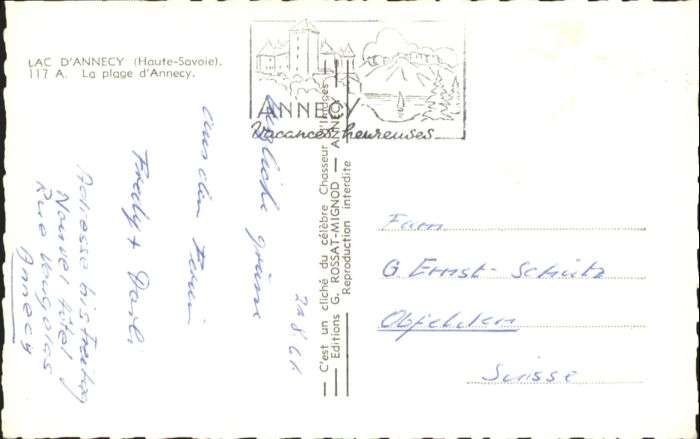 LAC D'ANNECY (Haute-Savoie).
117 A. La plage d'Annecy.
ANNECY
Vacances heureuses
21.8.61
Herzliche Grüsse
aus den Ferien
Fredy +
Adresse bis Freitag
Nouvel Hôtel
Rue Vaugelas
Annecy
— C'est un cliché du célèbre Chasseur d'Images —
— Editions G. ROSSAT-MIGNOD — ANNECY —
Reproduction interdite
Fam.
G. Ernst-Schütz
Obfelden
Suisse